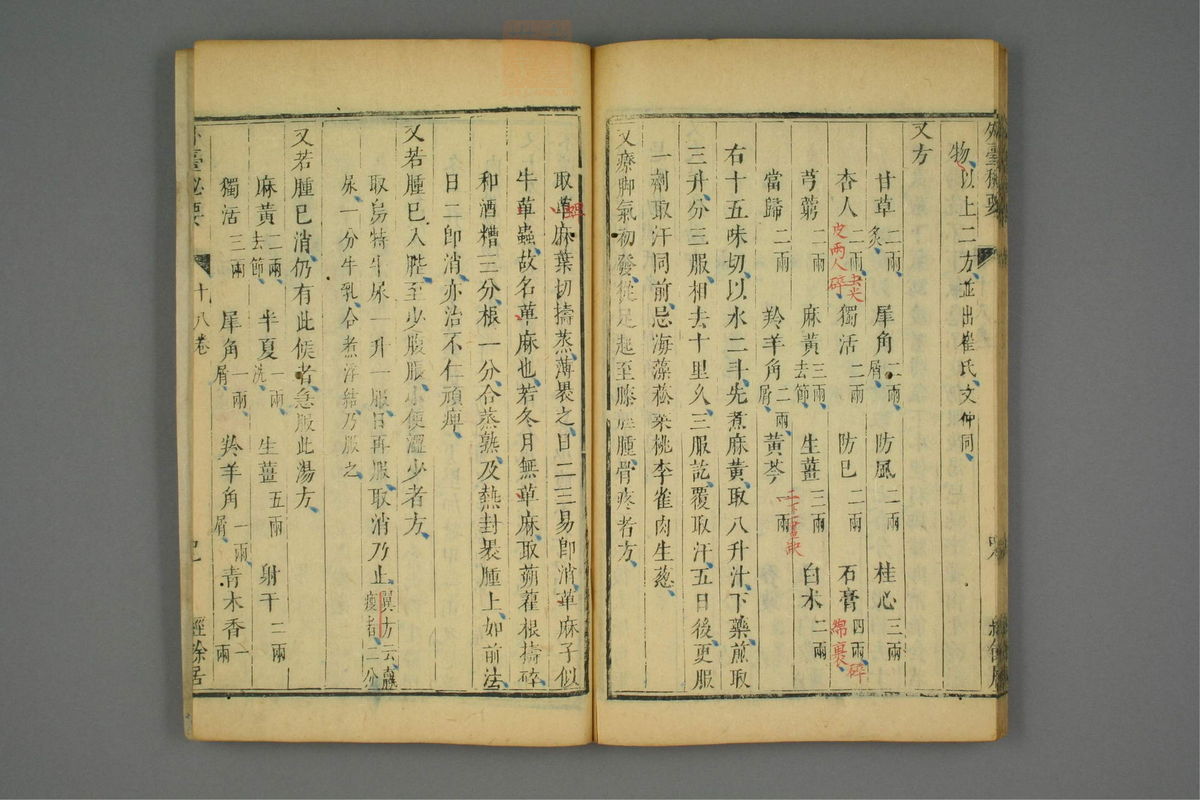 物以上二方並出崔氏文仲同
又方
甘草二兩炙 犀角二兩屑 防風二兩 桂心三兩
杏人二兩去尖皮兩人碎 獨活二兩 防巳二兩 石膏四兩碎綿裹
芎藭二兩 麻黃三兩去節 生薑三兩 白朮二兩
當歸二兩 羚羊角二兩屑 黃芩一兩
右十五味切以水二斗先煮麻黃取八升汁下藥煎取
三升分三服相去十里久三服訖覆取汗五日後更服
一劑取汗同前忌海藻菘菜桃李雀肉生蔥
又療脚氣初發從足起至膝脛腫骨疼者方
取萆麻葉切擣蒸薄褁之日二三易即消萆麻子似
牛萆蟲故名萆麻也若冬月無萆麻取蒴藋根擣碎
和酒糟三分根一分合蒸熟及熱封褁腫上如前法
日二即消亦治不仁頑痺
又若腫巳入䏶至少腹脹小便澀少者方
取烏特牛尿一升一服日再服取消乃止翼方云羸瘦者二分
尿一分牛乳合煮浮結乃服之
又若腫巳消仍有此候者急服此湯方
麻黃二兩去節 半夏一兩洗 生薑五兩 射干二兩
獨活三兩 犀角一兩屑 羚羊角一兩屑 青木香一兩
外臺祕要 十八卷 經餘居